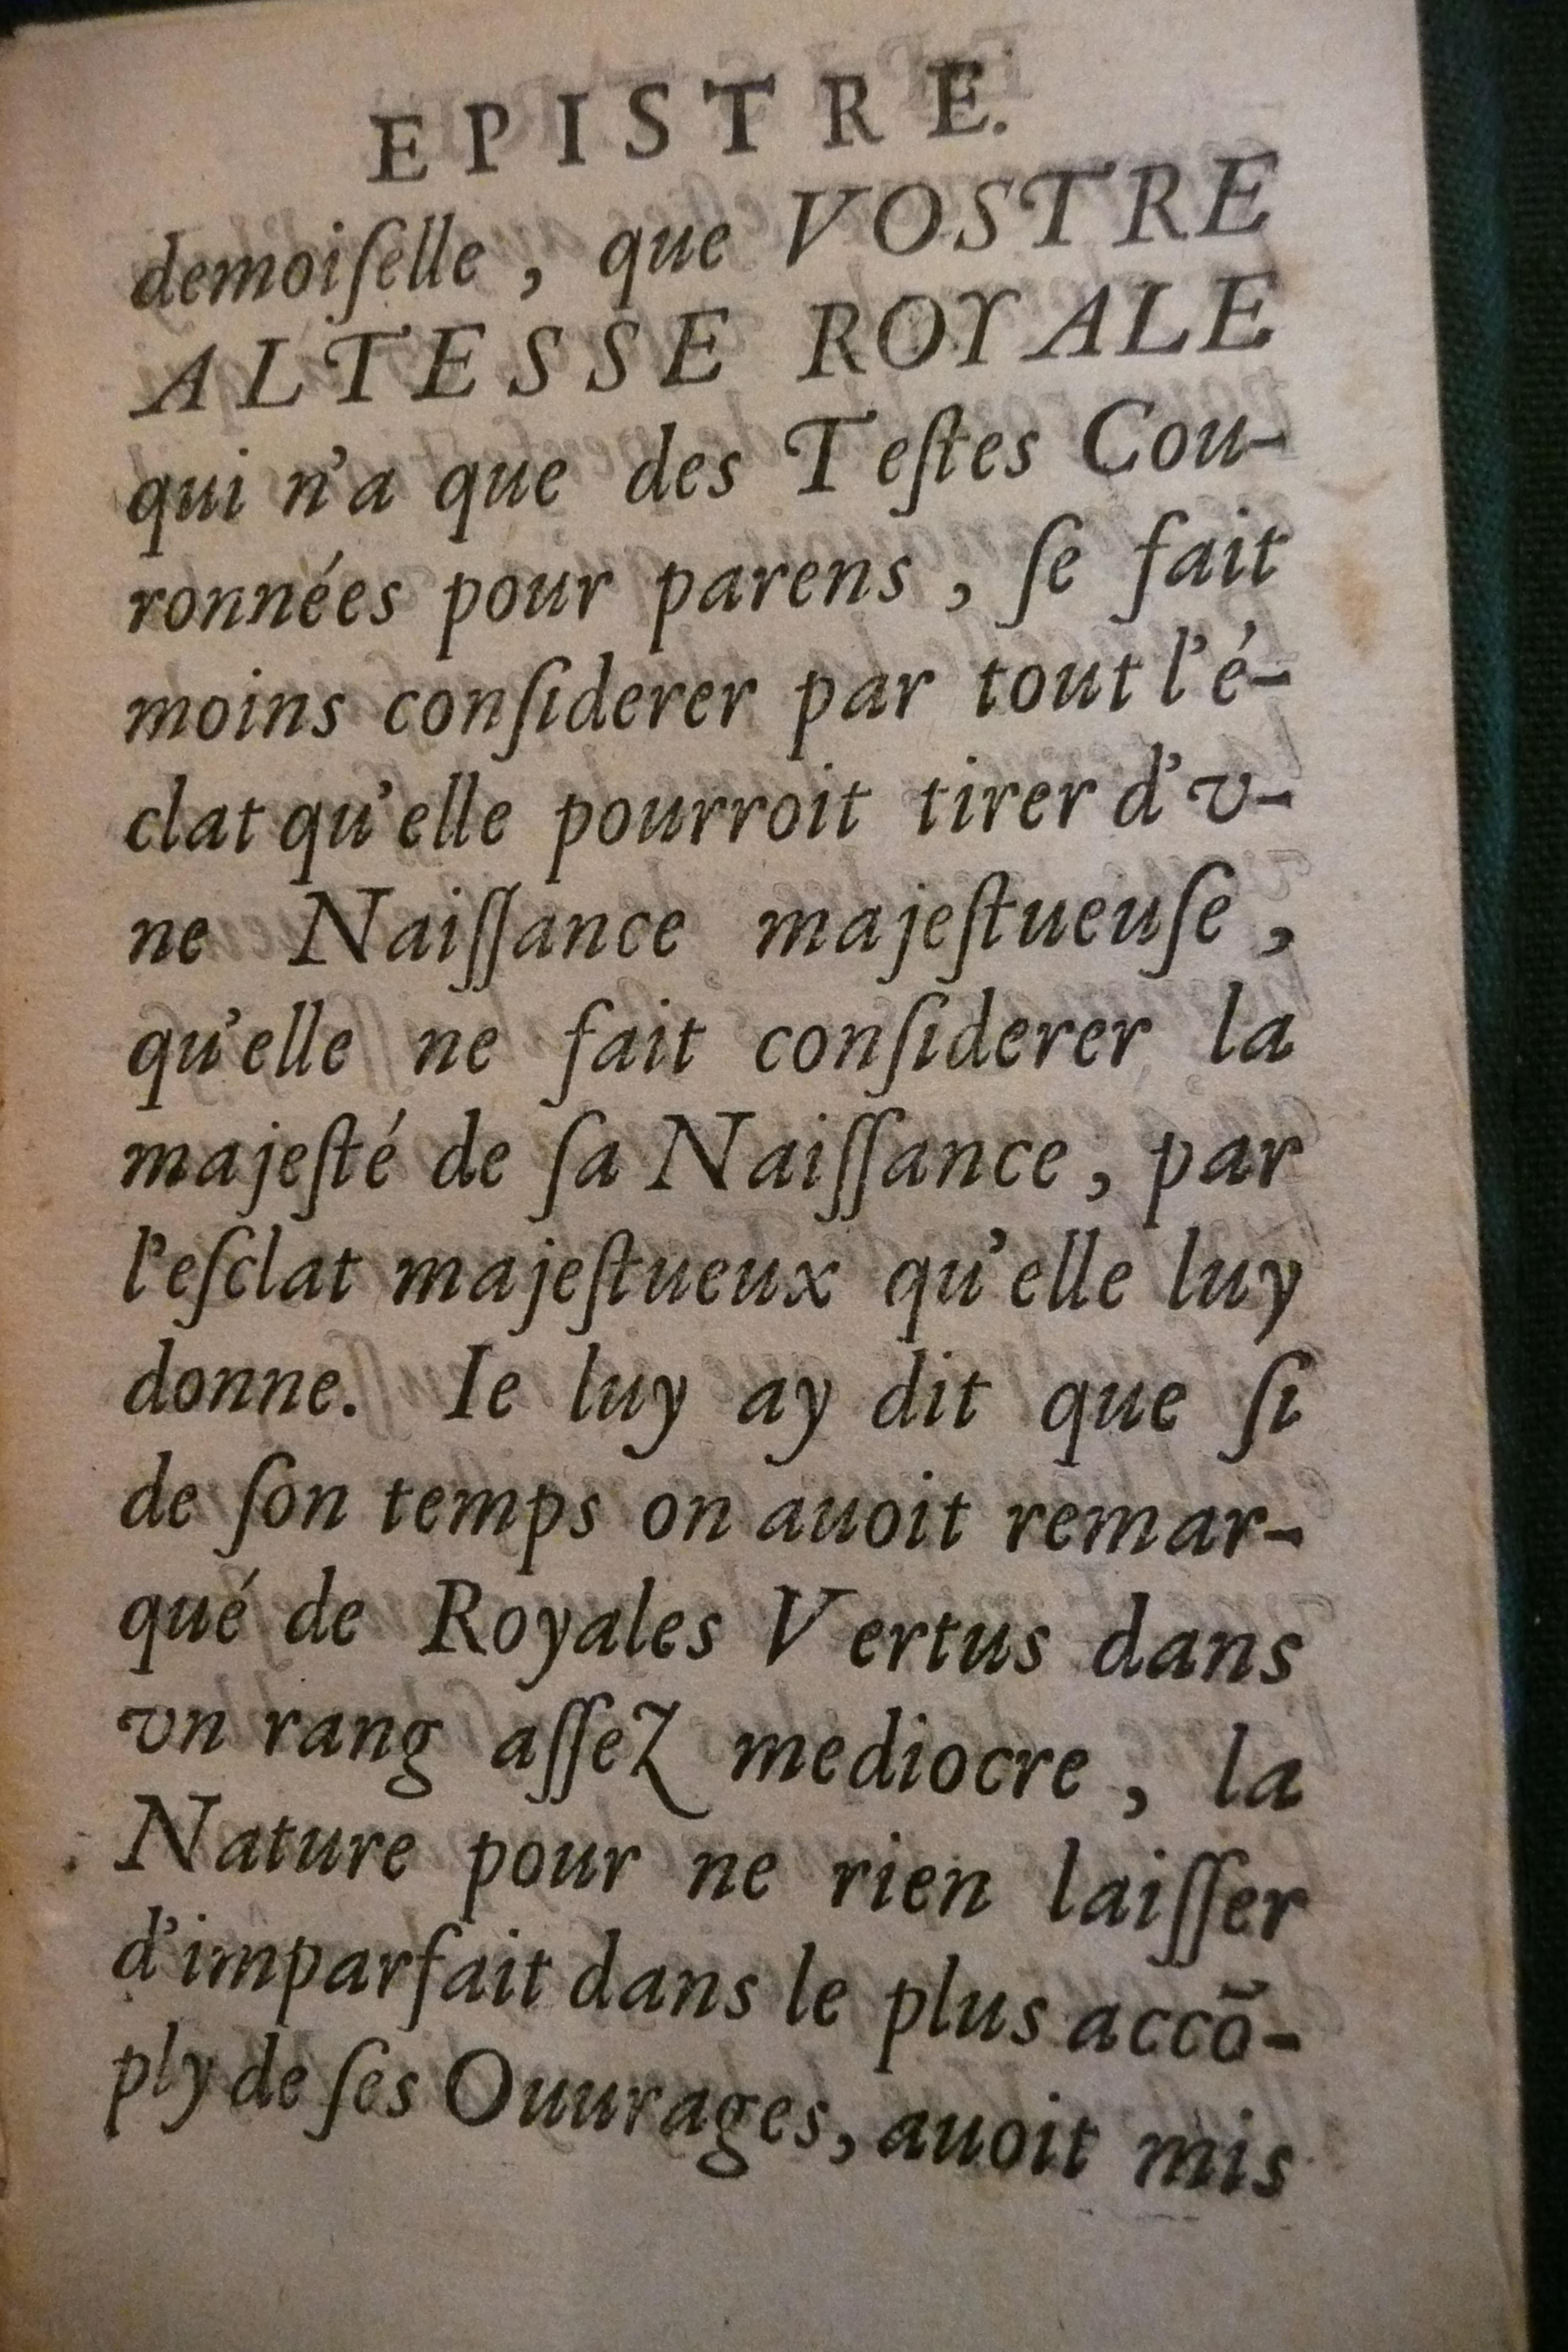 EPISTRE.
demoiſelle, que VOSTRE
ALTESSE ROYALE
qui n'a que des Teſtes Cou-
ronnées pour parens, ſe fait
moins conſiderer par tout l'é-
clat qu'elle pourroit tirer d'v-
ne Naiſſance majeſtueuſe,
qu'elle ne fait conſiderer la
majeſté de ſa Naiſſance, par
l'eſclat majeſtueux qu'elle luy
donne. Ie luy ay dit que ſi
de ſon temps on auoit remar-
qué de Royales Vertus dans
vn rang aſſez mediocre, la
Nature pour ne rien laiſſer
d'imparfait dans le plus accõ-
ply de ſes Ouurages, auoit mis